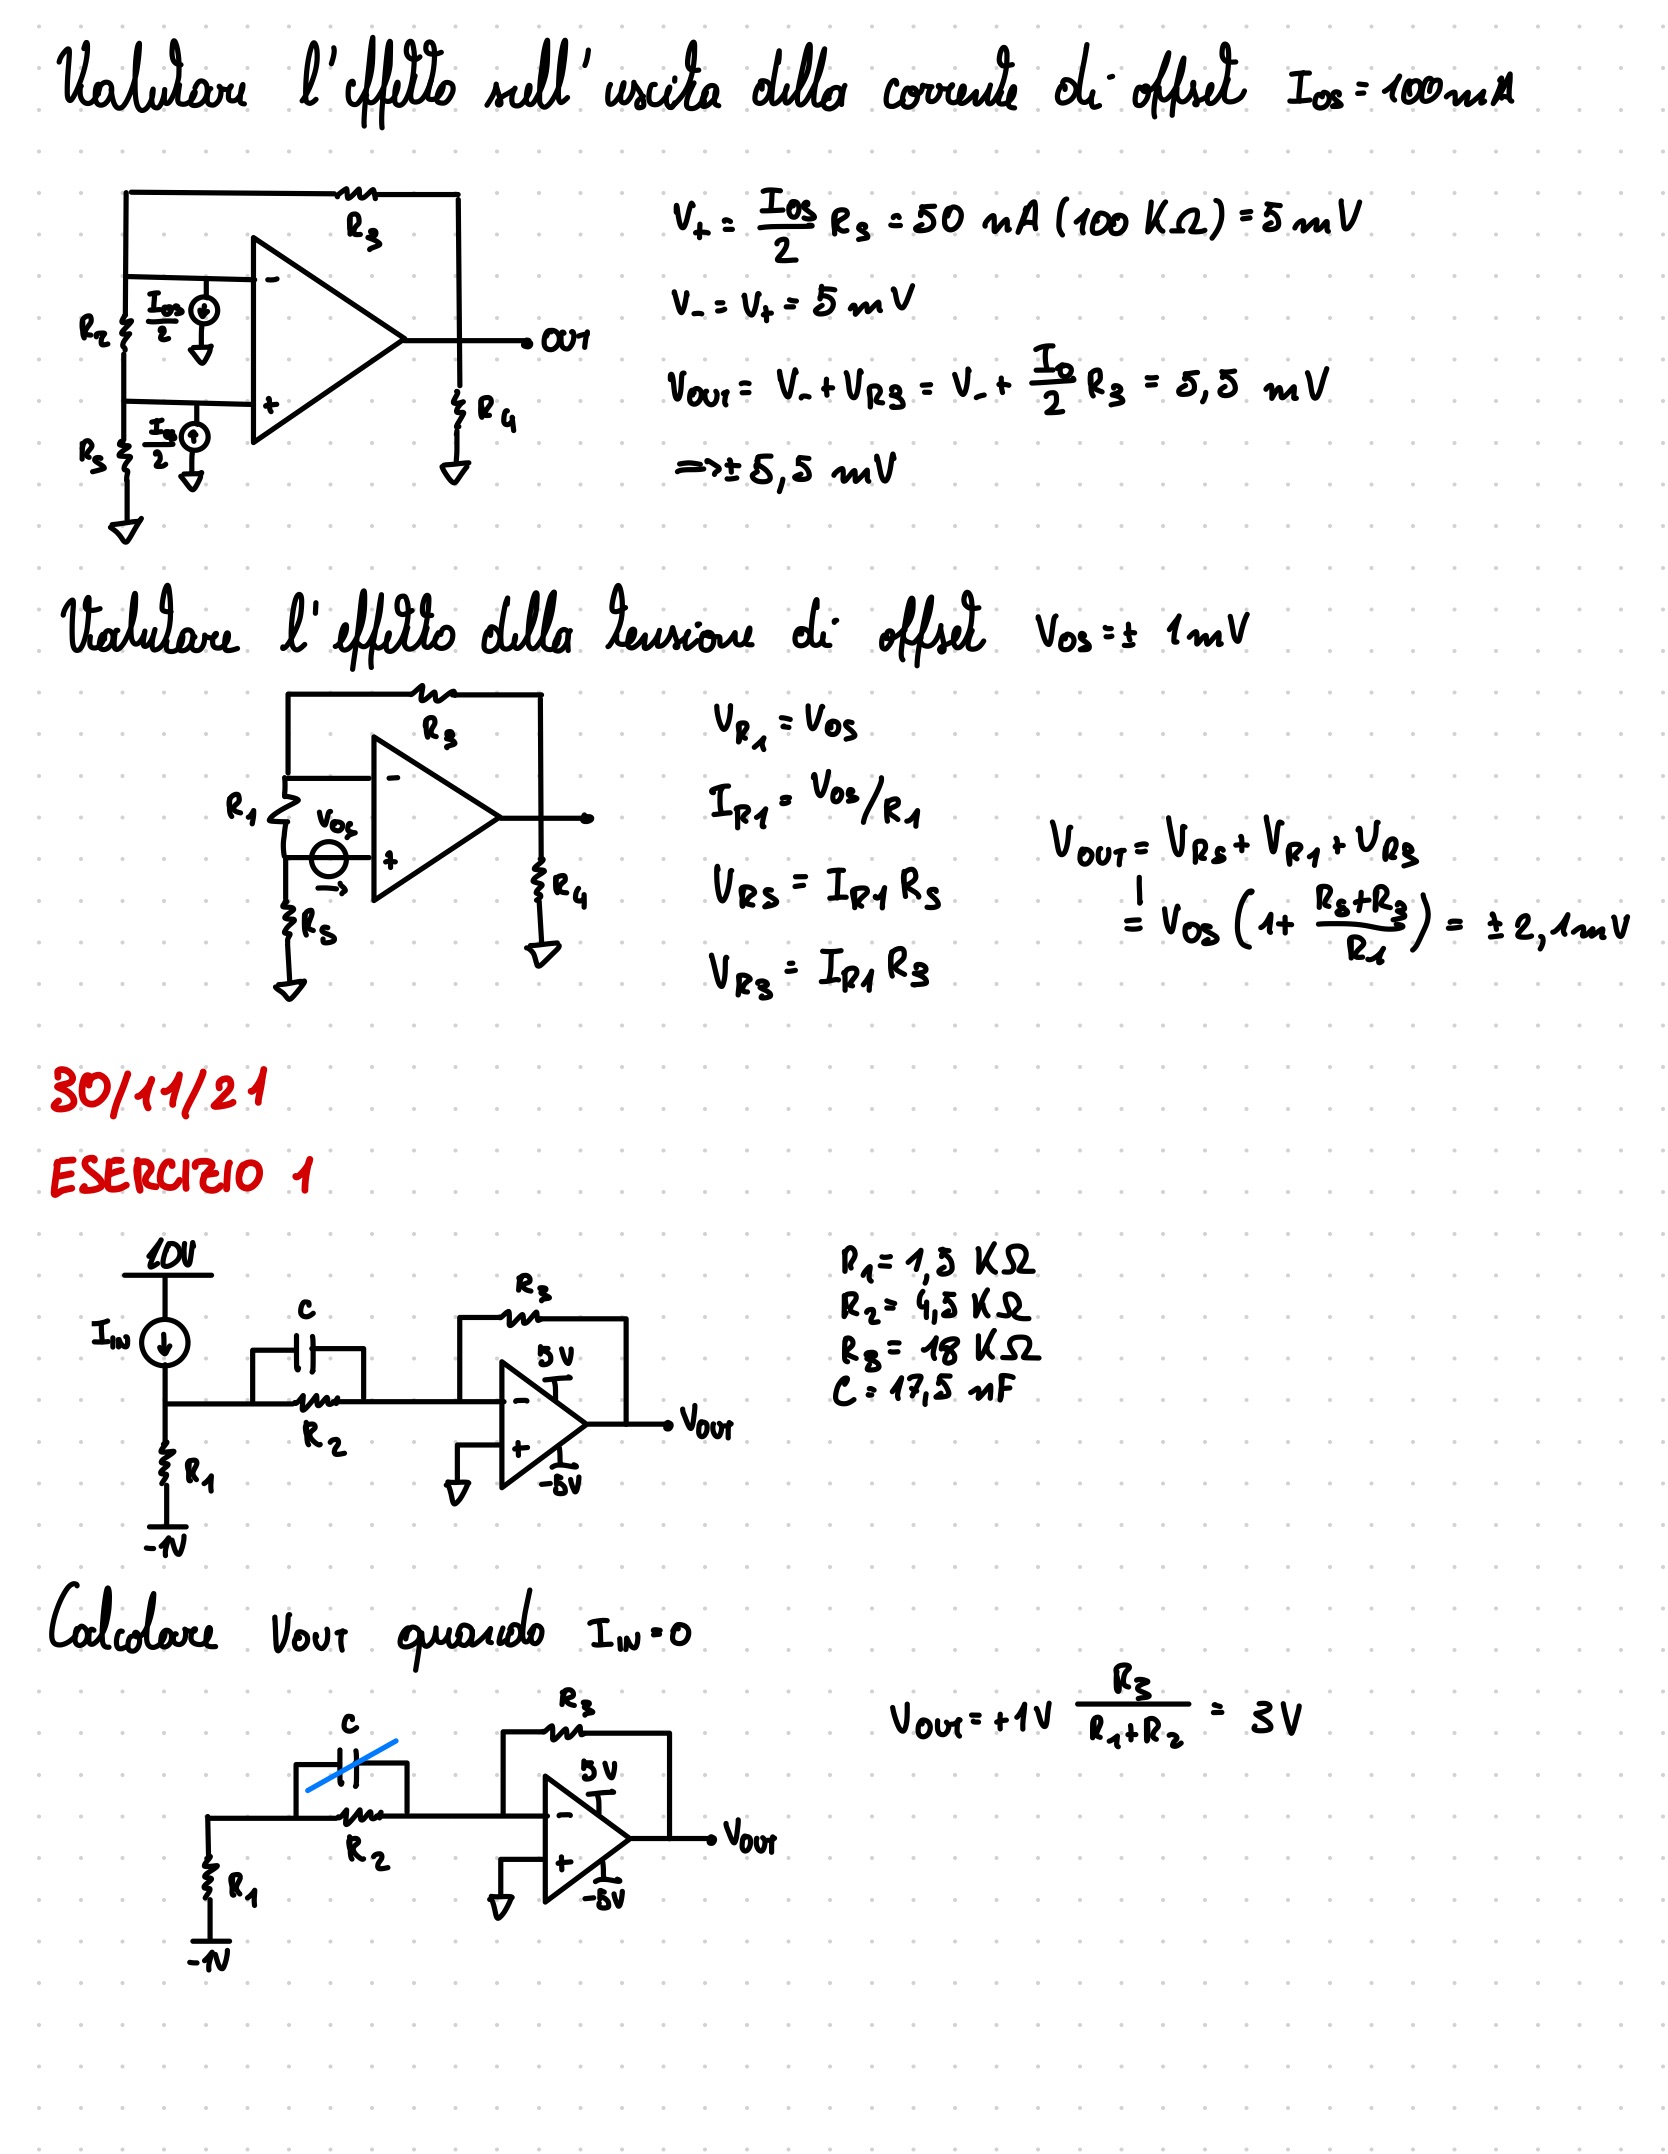 Valutare l'effetto sull'uscita della corrente di offset I_OS = 100 nA
R_3
R_2
I_OS/2
-
+
I_OS/2
R_S
OUT
R_4
V_+ = I_OS/2 R_S = 50 nA (100 KΩ) = 5 mV
V_- = V_+ = 5 mV
V_OUT = V_- + V_R3 = V_- + I_O/2 R_3 = 5,5 mV
=> ± 5,5 mV
Valutare l'effetto della tensione di offset V_OS = ± 1 mV
R_3
R_1
V_OS
-
+
R_S
R_4
V_R1 = V_OS
I_R1 = V_OS/R_1
V_RS = I_R1 R_S
V_R3 = I_R1 R_3
V_OUT = V_RS + V_R1 + V_R3
= V_OS (1 + (R_S + R_3)/R_1) = ± 2,1 mV
30/11/21
ESERCIZIO 1
10V
I_IN
C
R_2
R_1
-1V
R_3
5V
-
+
-5V
V_OUT
R_1 = 1,5 KΩ
R_2 = 4,5 KΩ
R_3 = 18 KΩ
C = 17,5 nF
Calcolare V_OUT quando I_IN = 0
C
R_2
R_1
-1V
R_3
5V
-
+
-5V
V_OUT
V_OUT = +1V R_3/(R_1 + R_2) = 3V